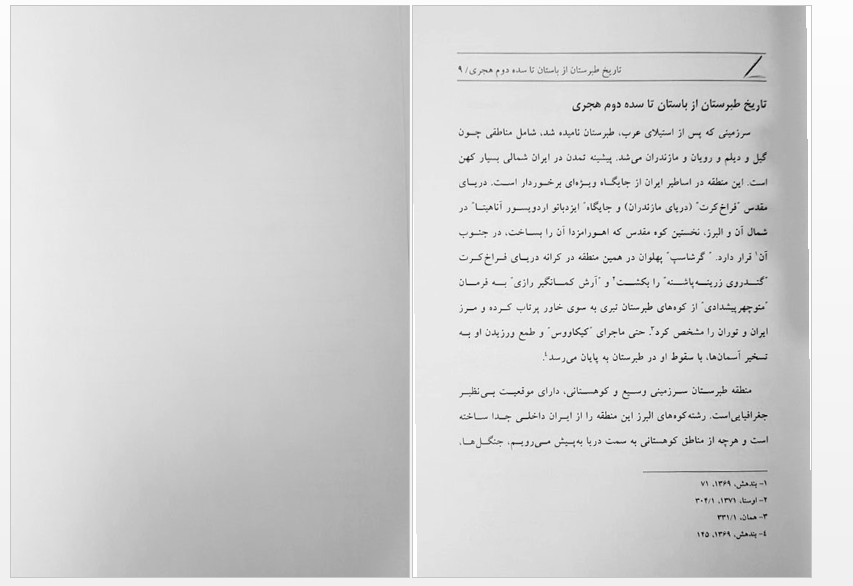 تاریخ طبرستان از باستان تا سده دوم هجری/ ۹
تاریخ طبرستان از باستان تا سده دوم هجری
سرزمینی که پس از استیلای عرب، طبرستان نامیده شد، شامل مناطقی چـون
گیل و دیلم و رویان و مازندران می‌شد. پیشینه تمدن در ایران شمالی بسیار کهن
است. این منطقه در اساطیر ایران از جایگـاه ویـژه‌ای برخـوردار اسـت. دریـای
مقدس "فراخ‌کرت" (دریای مازندران) و جایگاه" ایزدبانو اردویسـور آناهیتـا" در
شمال آن و البرز، نخستین کوه مقدس که اهـورامزدا آن را بسـاخت، در جنـوب
آن۱ قرار دارد. " گرشاسپ" پهلوان در همین منطقه در کرانه دریـای فـراخ‌کـرت
"گنـدروی زرینـه‌پاشـنه" را بکشـت۲ و "آرش کمـانگیر رازی" بـه فرمـان
"منوچهرپیشدادی" از کوه‌های طبرستان تیری به سوی خاور پرتاب کـرده و مـرز
ایران و توران را مشخص کرد۳. حتی ماجرای "کیکاووس" و طمع ورزیدن او بـه
تسخیر آسمان‌ها، با سقوط او در طبرستان به پایان می‌رسد۴.
منطقه طبرسـتان سـرزمینی وسـیع و کوهسـتانی، دارای موقعیـت بـی‌نظیـر
جغرافیایی‌است. رشته‌کوه‌های البرز این منطقه را از ایـران داخلـی جـدا سـاخته
است و هرچه از مناطق کوهستانی به سمت دریا به‌پـیش مـی‌رویـم، جنگـل‌هـا،
۱- بندهش، ۱۳۶۹، ۷۱
۲- اوستا، ۱۳۷۱، ۳۰۴/۱
۳- همان، ۳۳۱/۱
۴- بندهش، ۱۳۶۹، ۱۴۵